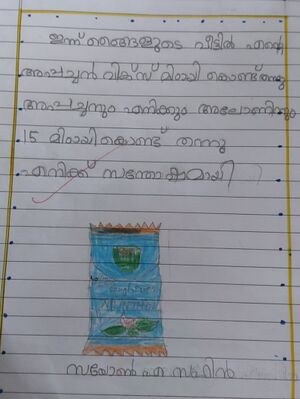 ഇന്ന് ഞങ്ങളുടെ വീട്ടിൽ എന്റെ
അപ്പച്ചൻ വിക്സ് മിഠായി കൊണ്ട്തന്നു
അപ്പച്ചനും എനിക്കും അലോണിനും
15 മിഠായി കൊണ്ട് തന്നു
എനിക്ക് സന്തോഷമായി
സയോൺ